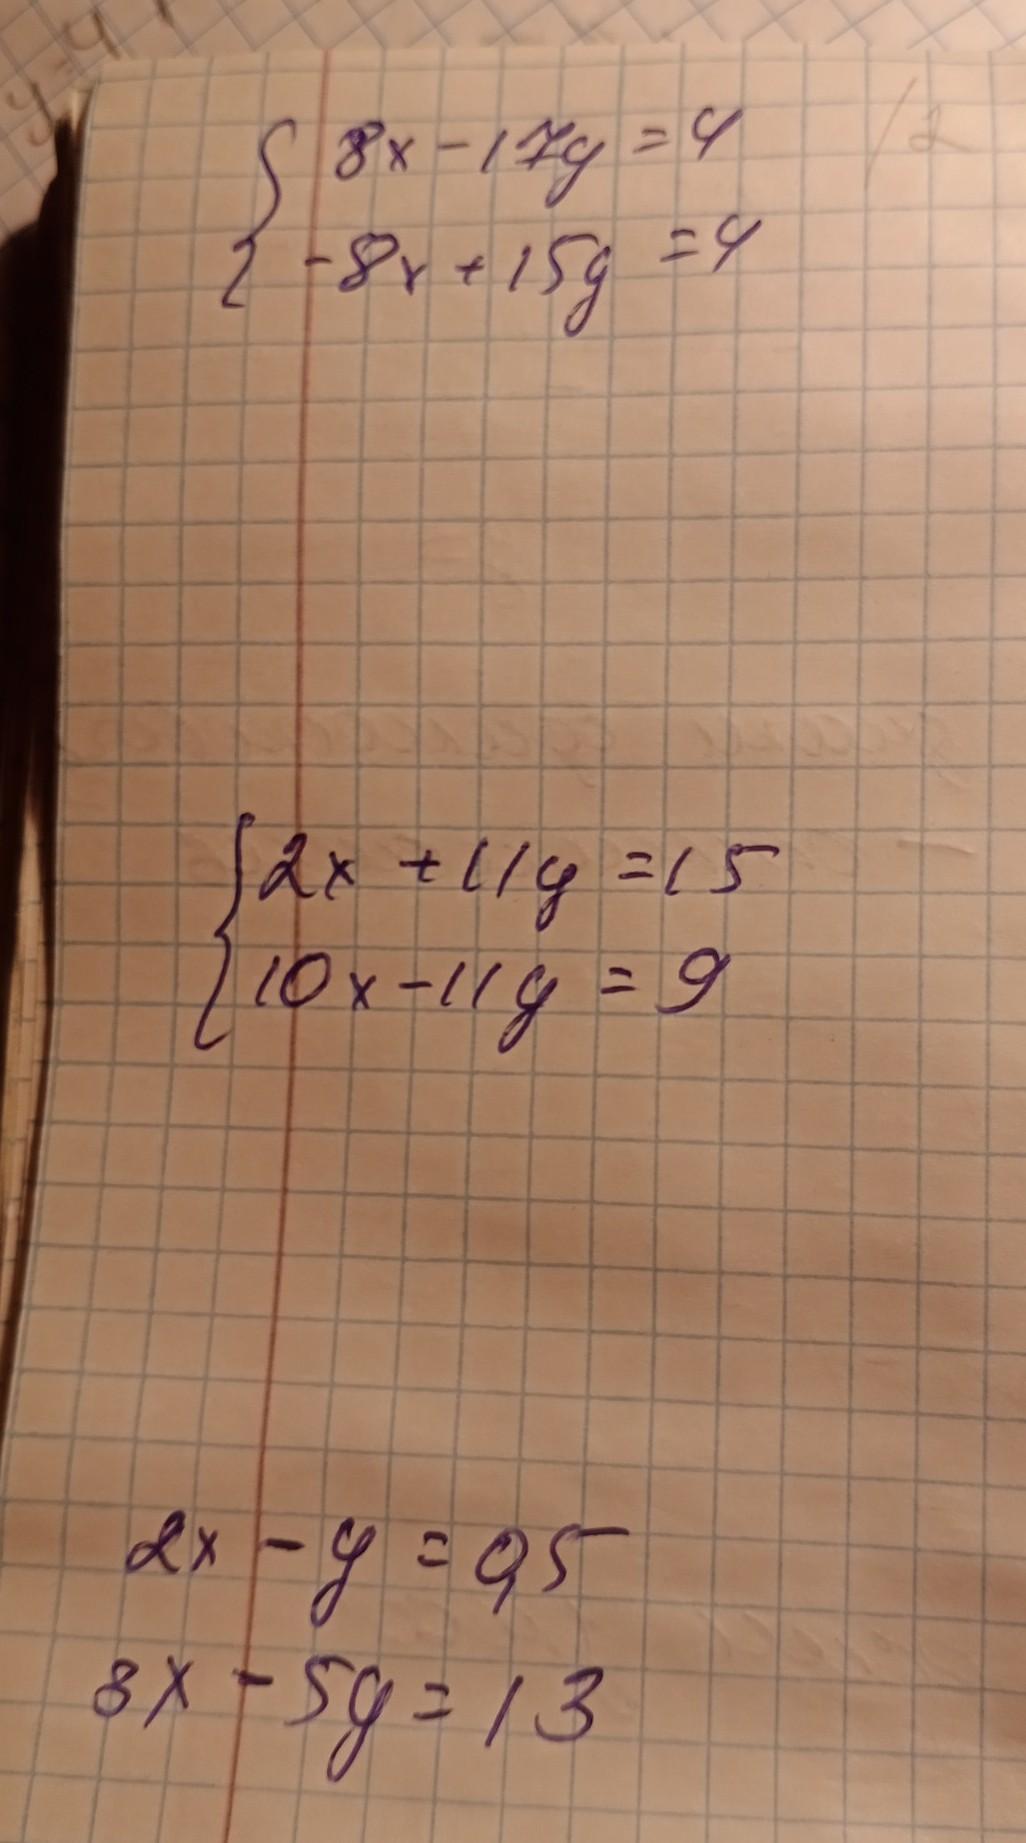 8x - 17y = 4
-8x + 15y = 4
2x + 11y = 15
10x - 11y = 9
2x - y = 0,5
8x - 5y = 13